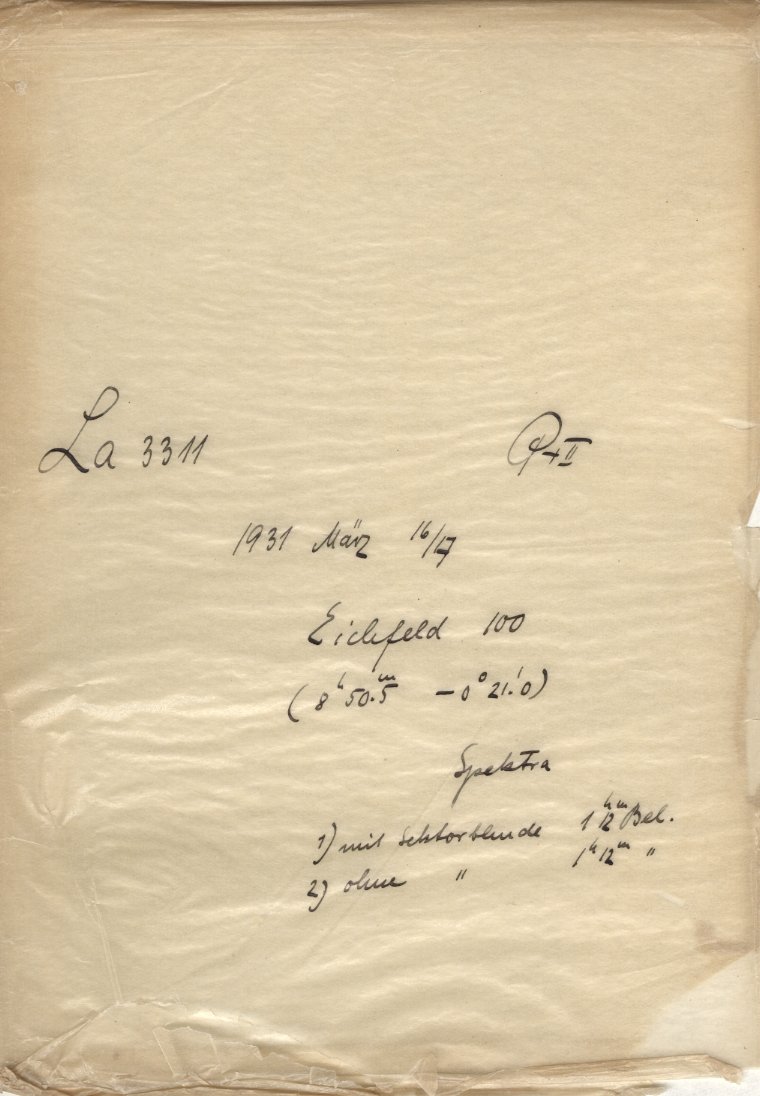 La 3311 P+II
1931 März 16/17
Eichfeld 100
(8ʰ50.ᵐ5 -0°21.'0)
Spektra
1) mit Sektorblende 1ʰ12ᵐ Bel.
2) ohne " 1ʰ12ᵐ "